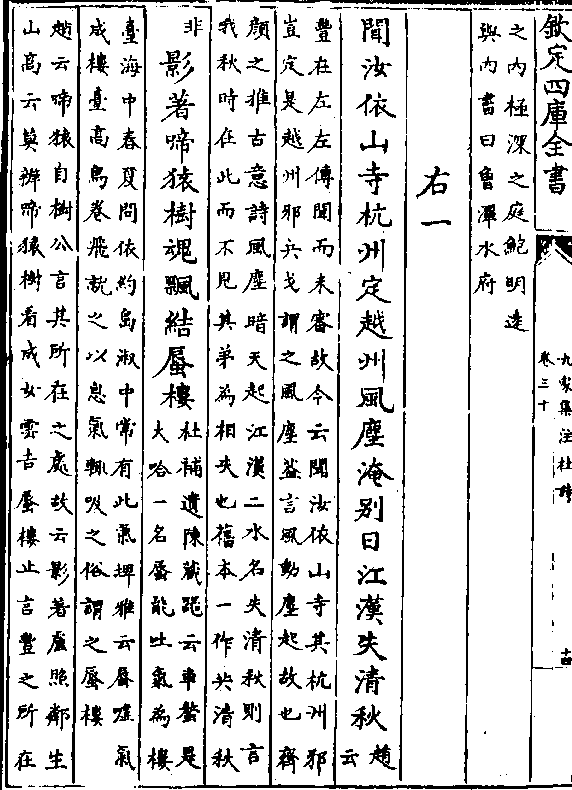 欽定四庫全書
九家集注杜詩
卷三十
十四
之内極深之庭鮑明逺
與内書曰㑹潭水府
右一
聞汝依山寺杭州定越州風塵淹别日江漢失清秋
趙
云
豐在左左傳聞而未審故今云聞汝依山寺其杭州邪
豈定是越州邪兵戈謂之風塵蓋言風動塵起故也齊
顔之推古意詩風塵暗天起江漢二水名失清秋則言
我秋時在此而不見其弟為相失也舊本一作共清秋
非
影著啼猿樹魂飄結蜃樓
杜補遺陳藏器云車螯是
大哈一名蜃能吐氣為樓
臺海中春夏間依約島溆中常有此氣埤雅云蜃嘘氣
成樓臺高鳥巻飛就之以息氣輙吸之俗謂之蜃樓
趙云啼猿自樹公言其所在之處故云影著盧照鄰生
山高云莫辨啼猿樹看成女雲吉蜃樓止言豐之所在